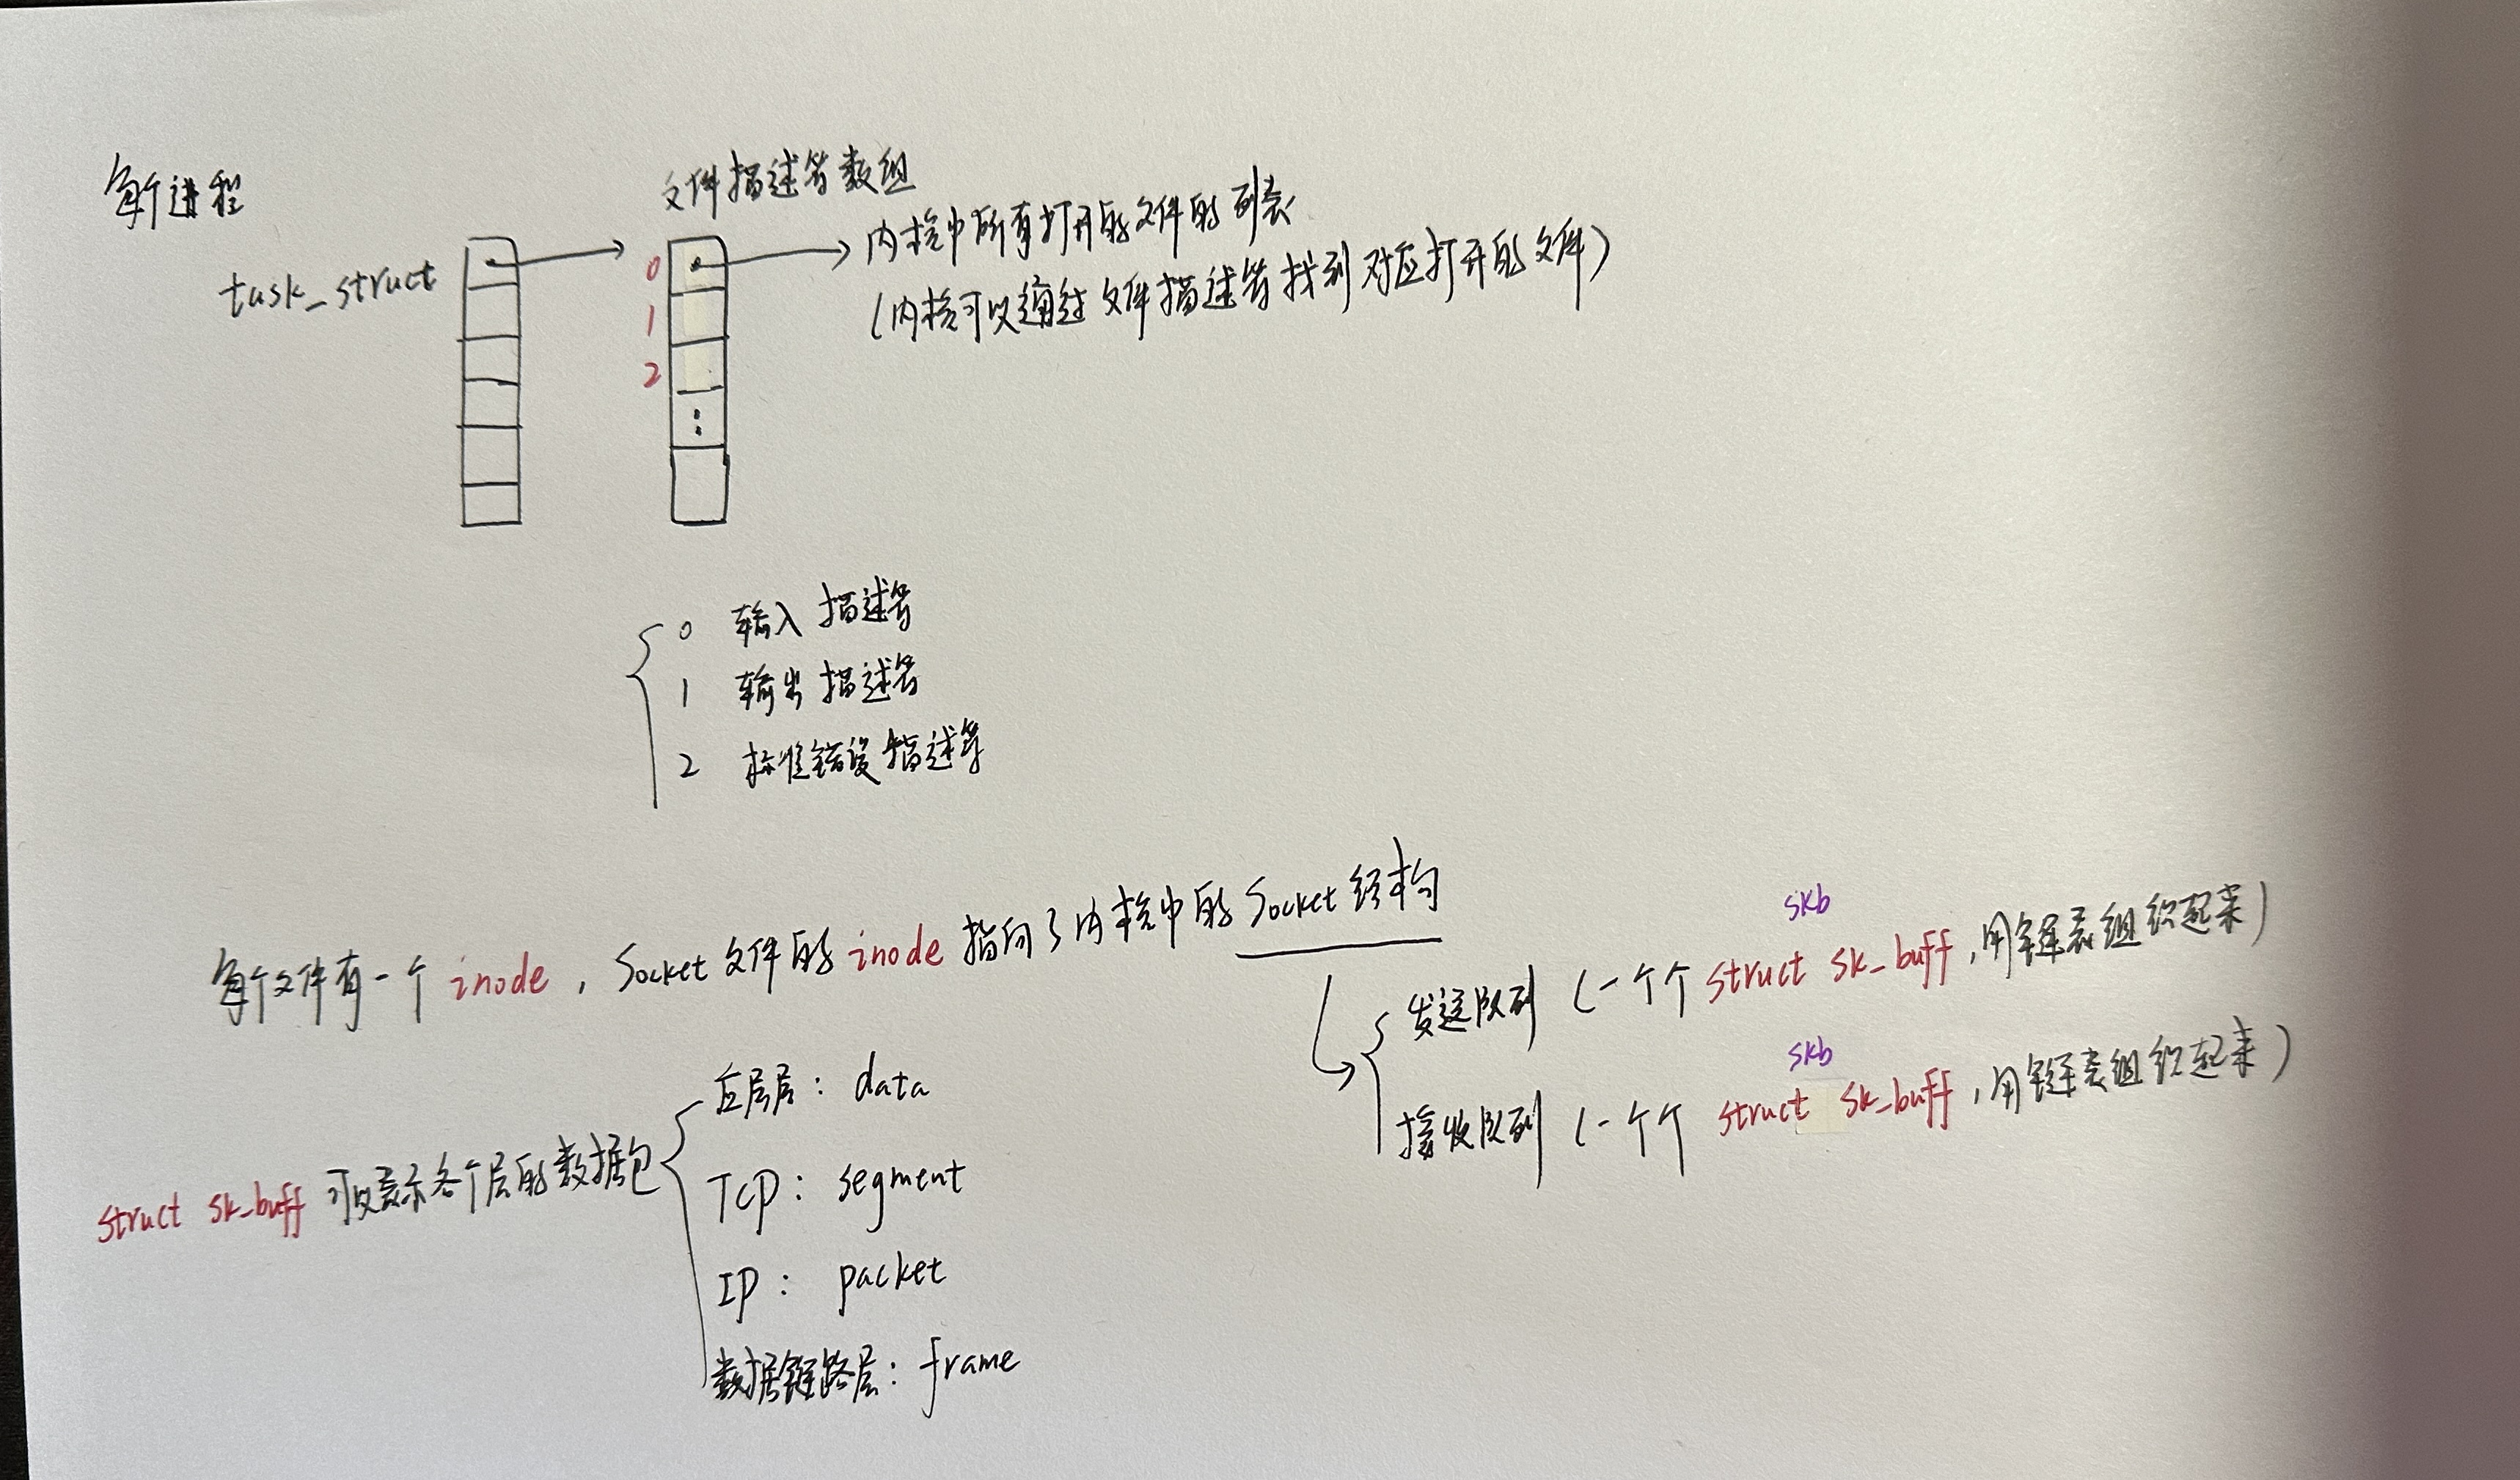 每个进程
文件描述符数组
task_struct
0
1
2
内核中所有打开的文件的列表
(内核可以通过文件描述符找到对应打开的文件)
0 输入描述符
1 输出描述符
2 标准错误描述符
每个文件有一个 inode , Socket 文件的 inode 指向了内核中的 Socket 结构
skb
发送队列 (一个个 struct sk_buff , 用链表组织起来)
skb
接收队列 (一个个 struct sk_buff , 用链表组织起来)
struct sk_buff 可以表示各个层的数据包
应层层 : data
TCP : segment
IP : packet
数据链路层 : frame